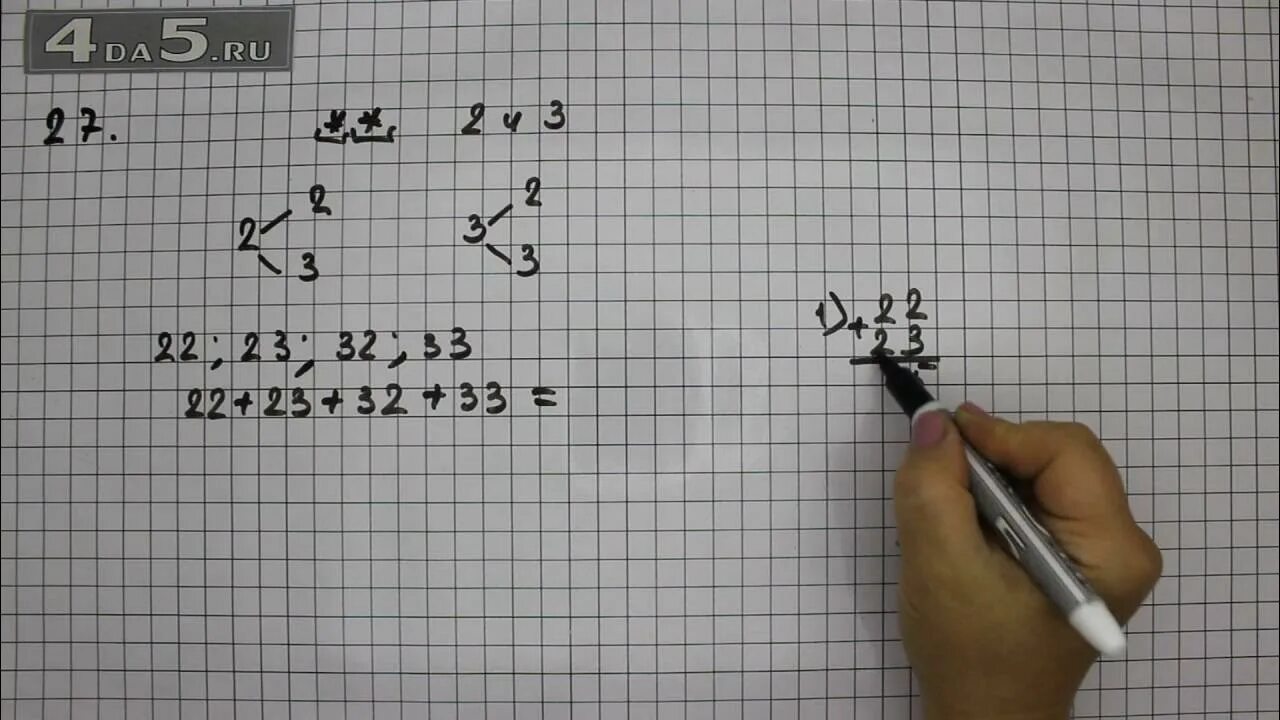 4DA5.RU
27. ** 2 и 3
2 2 3
3 2 3
22; 23; 32; 33
22+23+32+33 =
1) + 22
23